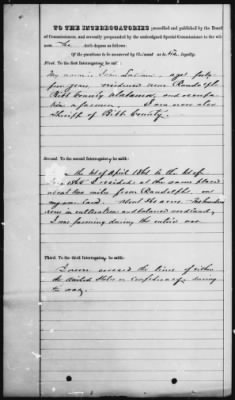 TO THE INTERROGATORIES prescribed and published by the Board
of Commissioners, and severally propounded by the undersigned Special Commissioner to the
ness, he doth depose as follows:
(If the questions to be answered by Claimant as to
First. To the First Interrogatory he saith:
My name is aged forty
five years, residence near Randolph
Bibb County Alabama, and occupa
tion a farmer. I am now also
Sheriff of Bibb County.
Second. To the second Interrogatory he saith:
the 1st of April 1861 to the 1st of
I resided at the same place
about two miles from Randolph, on
my own land. About the acres
were in cultivation and balance woodland,
I was farming during the entire war.
Third. To the third Interrogatory he saith:
I never crossed the lines of either
the United States or Confederacy during
the war.